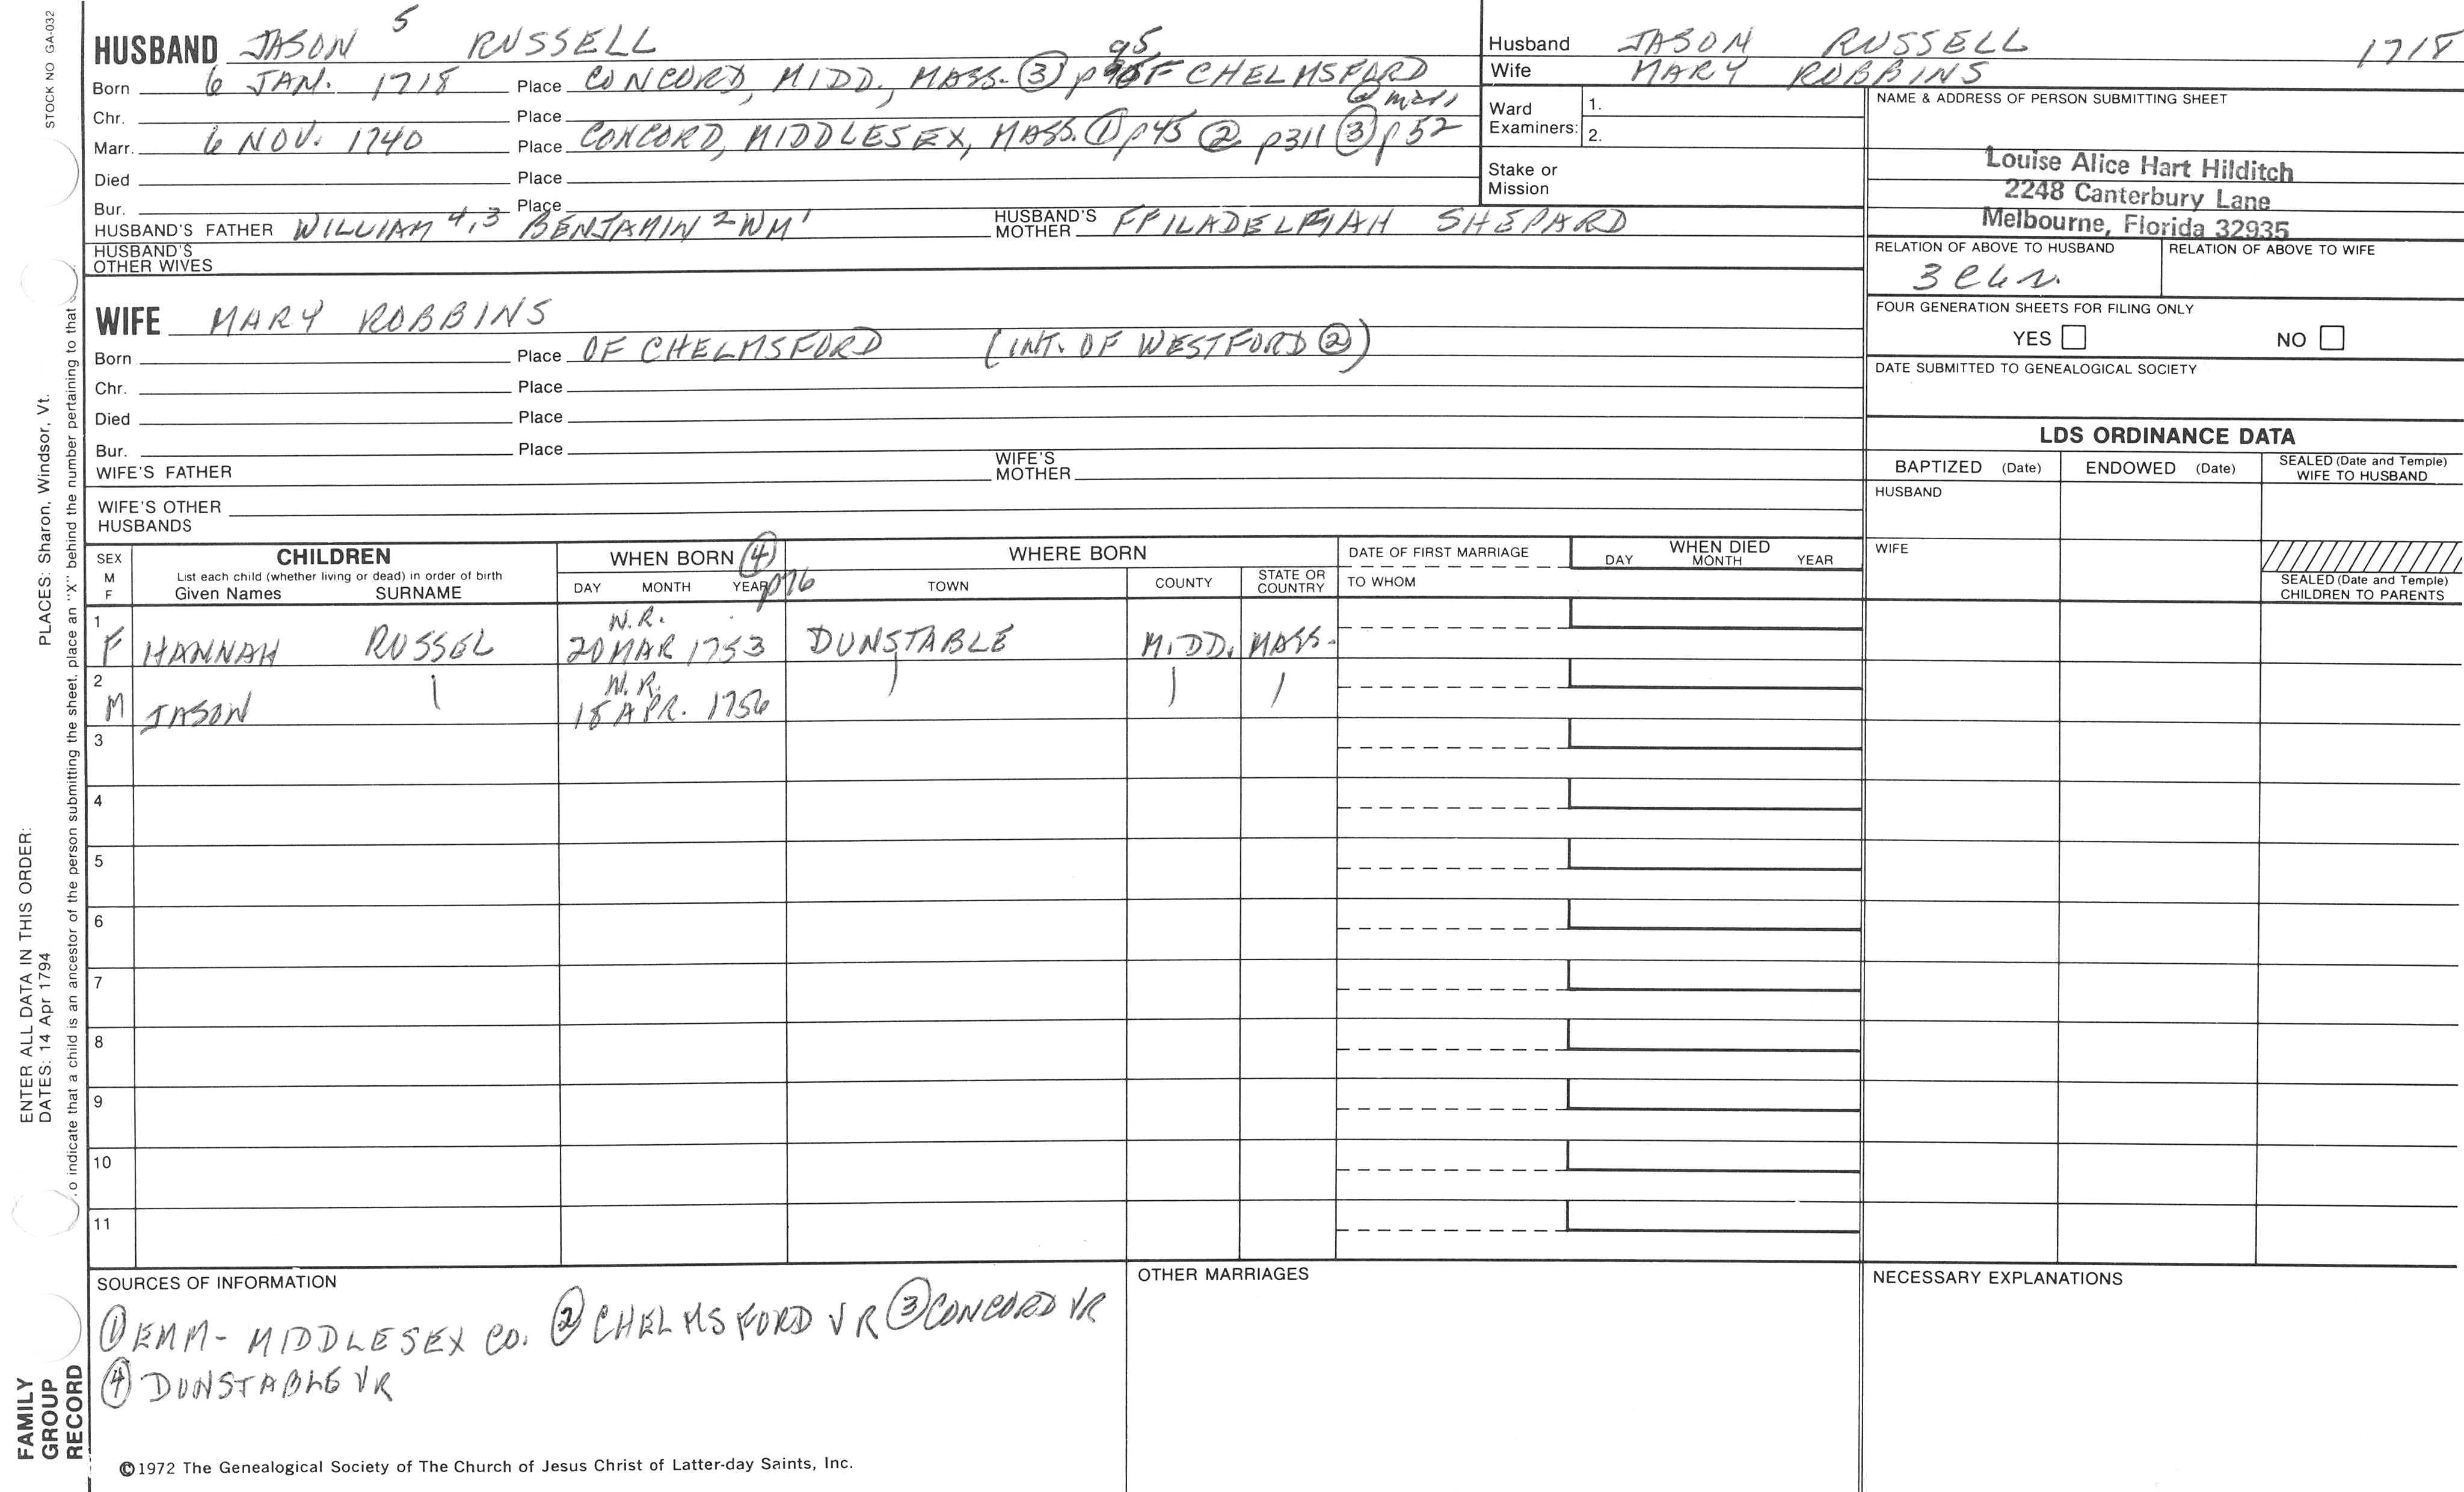 STOCK NO GA-032
HUSBAND JASON 5 RUSSELL
Born 6 JAN. 1718 Place CONCORD, MIDD., MASS. ③ p 95 OF CHELMSFORD
@ marr
Chr. Place
Marr. 6 NOV. 1740 Place CONCORD, MIDDLESEX, MASS. ① p45 ② p311 ③ p52
Died Place
Bur. Place
HUSBAND'S FATHER WILLIAM 4,3 BENJAMIN 2 WM 1 HUSBAND'S MOTHER SHEPARD
HUSBAND'S OTHER WIVES
Husband JASON RUSSELL 1718
Wife MARY ROBBINS
Ward Examiners: 1.
2.
Stake or Mission
NAME & ADDRESS OF PERSON SUBMITTING SHEET
Louise Alice Hart Hilditch
2248 Canterbury Lane
Melbourne, Florida 32935
RELATION OF ABOVE TO HUSBAND RELATION OF ABOVE TO WIFE
FOUR GENERATION SHEETS FOR FILING ONLY
YES NO
DATE SUBMITTED TO GENEALOGICAL SOCIETY
WIFE MARY ROBBINS
Born Place OF CHELMSFORD (INT. OF WESTFORD ②)
Chr. Place
Died Place
Bur. Place
WIFE'S FATHER WIFE'S MOTHER
WIFE'S OTHER HUSBANDS
LDS ORDINANCE DATA
BAPTIZED (Date) ENDOWED (Date) SEALED (Date and Temple) WIFE TO HUSBAND
HUSBAND
WIFE
SEALED (Date and Temple) CHILDREN TO PARENTS
SEX M F CHILDREN WHEN BORN ④ p76 WHERE BORN DATE OF FIRST MARRIAGE WHEN DIED
List each child (whether living or dead) in order of birth
Given Names SURNAME DAY MONTH YEAR TOWN COUNTY STATE OR COUNTRY TO WHOM DAY MONTH YEAR
N.R.
1 F HANNAH RUSSEL 20 MAR 1753 DUNSTABLE MIDD. MASS.
N.R.
2 M JASON 18 APR. 1756
3
4
5
6
7
8
9
10
11
SOURCES OF INFORMATION
① EMM- MIDDLESEX CO. ② CHELMSFORD VR ③ CONCORD VR
④ DUNSTABLE VR
OTHER MARRIAGES
NECESSARY EXPLANATIONS
©1972 The Genealogical Society of The Church of Jesus Christ of Latter-day Saints, Inc.
FAMILY
GROUP
RECORD
ENTER ALL DATA IN THIS ORDER:
DATES: 14 Apr 1794 PLACES: Sharon, Windsor, Vt.
o indicate that a child is an ancestor of the person submitting the sheet, place an "X" behind the number pertaining to that